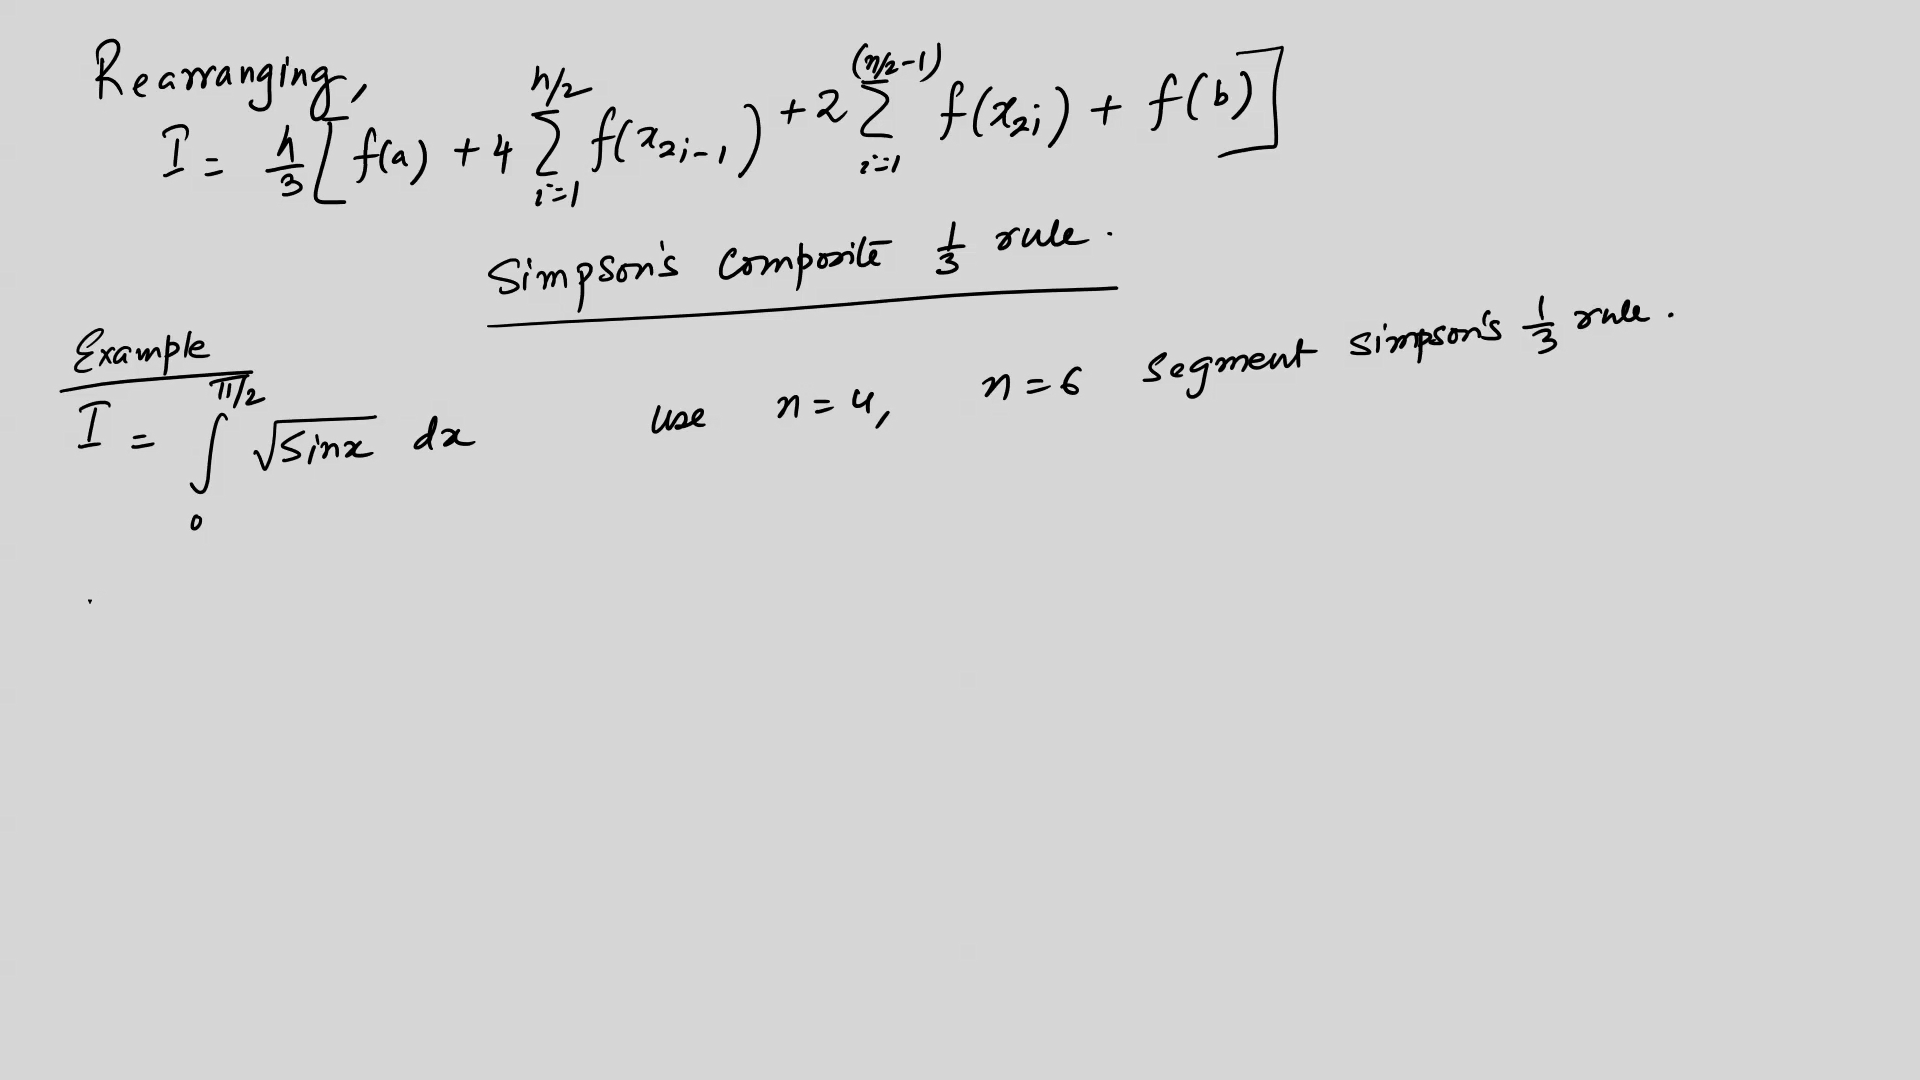 Rearranging,
I = h/3 [ f(a) + 4 ∑_{i=1}^{n/2} f(x_{2i-1}) + 2 ∑_{i=1}^{(n/2-1)} f(x_{2i}) + f(b) ]
Simpson's Composite 1/3 rule.
Example
I = ∫_0^{π/2} √Sinx dx use n = 4, n = 6 Segment Simpson's 1/3 rule.